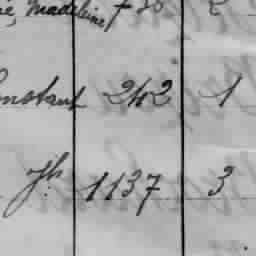 Madeleine
onstant 242 1
Jh. 1137 3